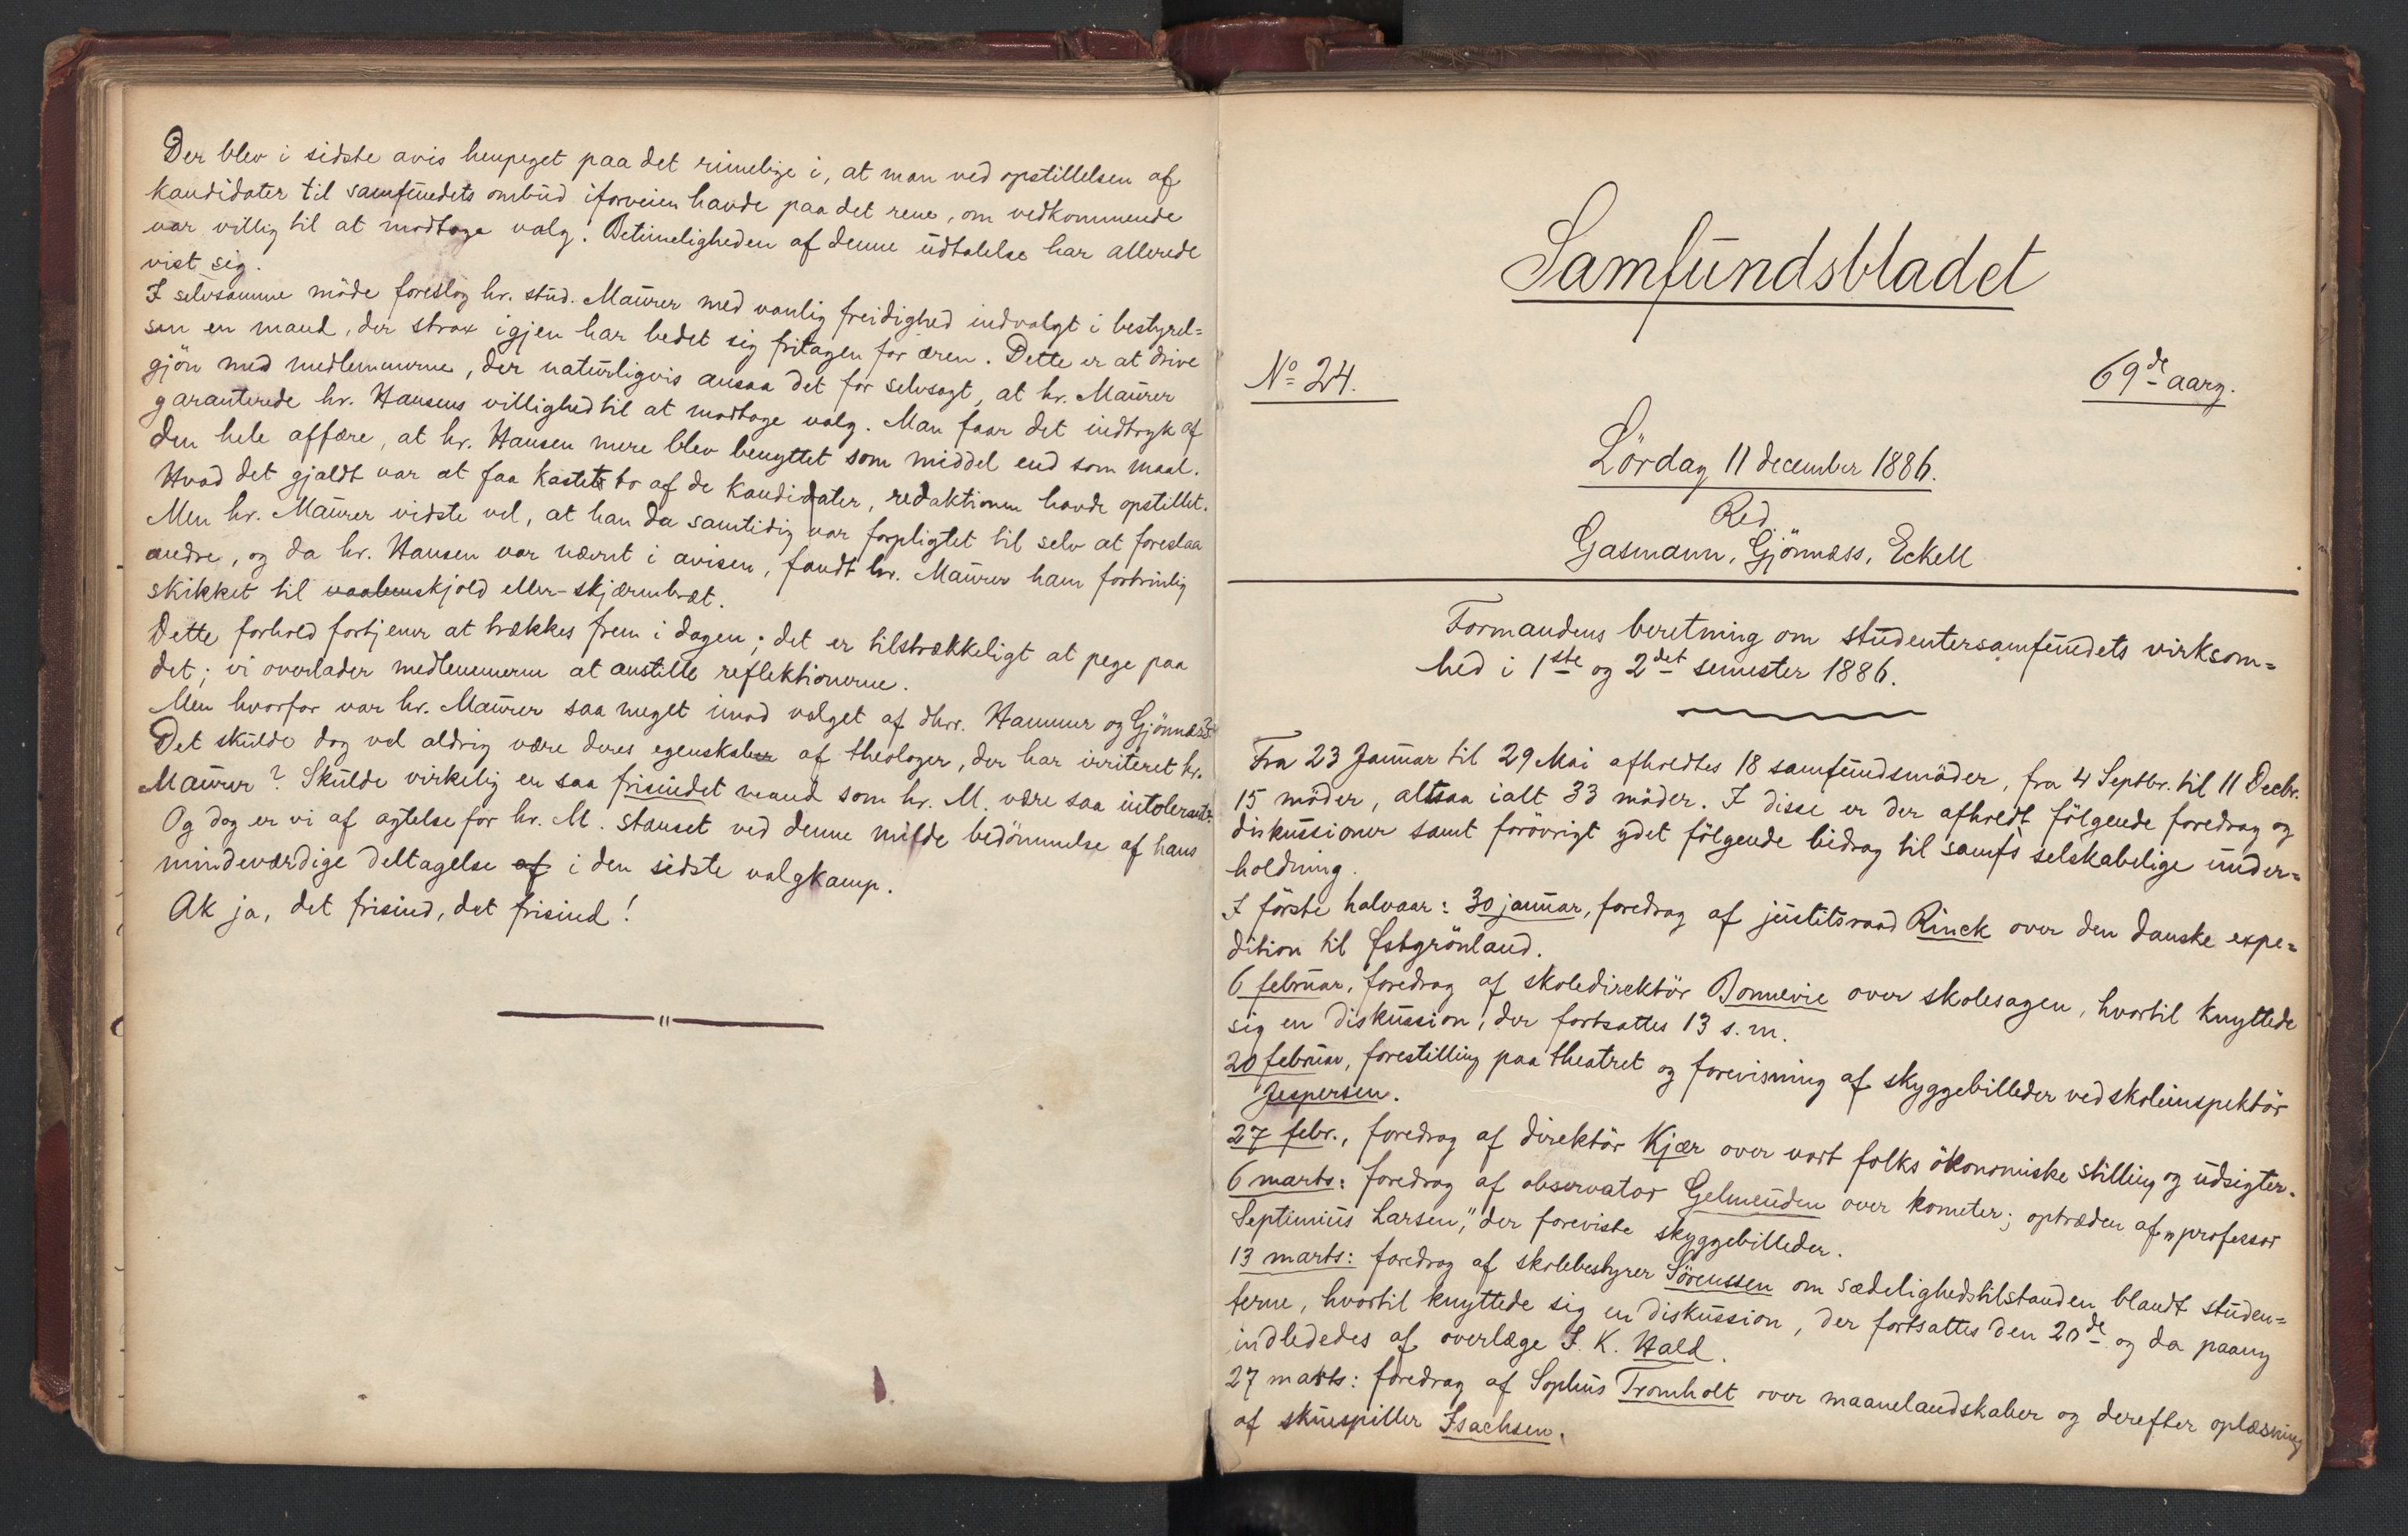 Der blev i sidste avis henpeget paa det rimelige i, at man ved opstillelsen af
kandidater til samfundets ombud iforveien havde paa det rene, om vedkommende
var villig til at modtage valg. Betimeligheden af denne udtalelse har allerede
vist sig.
I selvsamme möde foreslog hr. stud. Maurer med vanlig freidighed indvalgt i bestyrel=
sen en mand, der strax igjen har bedet sig fritagen for æren. Dette er at drive
gjön med medlemmerne, der naturligvis ansaa det for selvsagt, at hr. Maurer
garanterede hr. Hansens villighed til at modtage valg. Man faar det indtryk af
den hele affære, at hr. Hansen mere blev benyttet som middel end som maal.
Hvad det gjaldt var at faa kastet to af de kandidater, redaktionen havde opstillet.
Men hr. Maurer vidste vel, at han da samtidig var forpligtet til selv at foreslaa
andre, og da hr. Hansen var nævnt i avisen, fandt hr. Maurer ham fortrinlig
skikket til vaabenskjold eller – skjærmbræt.
Dette forhold fortjener at trækkes frem i dagen; det er tilstrækkeligt at pege paa
det; vi overlader medlemmerne at anstille reflektionerne.
Men hvorfor var hr. Maurer saa meget imod valget af dhrr. Hammer og Gjönnæss?
Det skulde dog vel aldrig være deres egenskaber af theologer, der har irriteret hr.
Maurer? Skulde virkelig en saa frisindet mand som hr. M. være saa intolerant?
Og dog er vi af agtelse for hr. M. stanset ved denne milde bedömmelse af hans
mindeværdige deltagelse af i den sidste valgkamp.
Ak ja, det frisind, det frisind!
Samfundsbladet
No 24.
69de aarg.
Lördag 11 december 1886.
Red.
Gasmann, Gjönnæss, Eckell
Formandens beretning om studentersamfundets virksom=
hed i 1ste og 2det semester 1886.
Fra 23 Januar til 29 Mai afholdtes 18 samfundsmöder, fra 4 Septbr. til 11 Decbr.
15 möder, altsaa ialt 33 möder. I disse er der afholdt fölgende foredrag og
diskussioner samt forövrigt ydet fölgende bidrag til samfs selskabelige under=
holdning.
I förste halvaar: 30 januar, foredrag af justitsraad Rinck over den danske expe=
dition til Østgrönland.
6 februar, foredrag af skoledirektör Bonnevie over skolesagen, hvortil knyttede
sig en diskussion, der fortsattes 13 s. m.
20 februar, forestilling paa theatret og forevisning af skyggebilleder ved skoleinspektör
Jespersen.
27 febr., foredrag af direktör Kjær over vort folks ökonomiske stilling og udsigter.
6 marts: foredrag af observator Gelmeuden over kometer; optræden af „professor
Septimius Larsen," der foreviste skyggebilleder.
13 marts: foredrag af skolebestyrer Sörenssen om sædelighedstilstanden blandt studen=
terne, hvortil knyttede sig en diskussion, der fortsattes den 20de og da paany
indlededes af overlæge I. K. Hald.
27 marts: foredrag af Sophus Tromholt over maanelandskaber og derefter oplæsning
af skuespiller Isachsen.